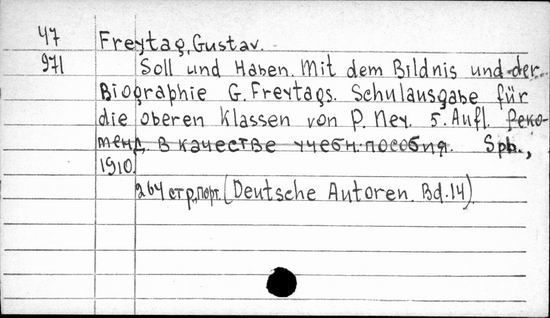 47 Freytag, Gustav.
971 Soll und Haben. Mit dem Bildnis und der
Biographie G. Freytags. Schulausgabe für
die oberen Klassen von P. Ney. 5. Aufl. Реко-
менд. в качестве учебн. пособия. Spb.,
1910.
264 стр., порт. (Deutsche Autoren. Bd. 14)